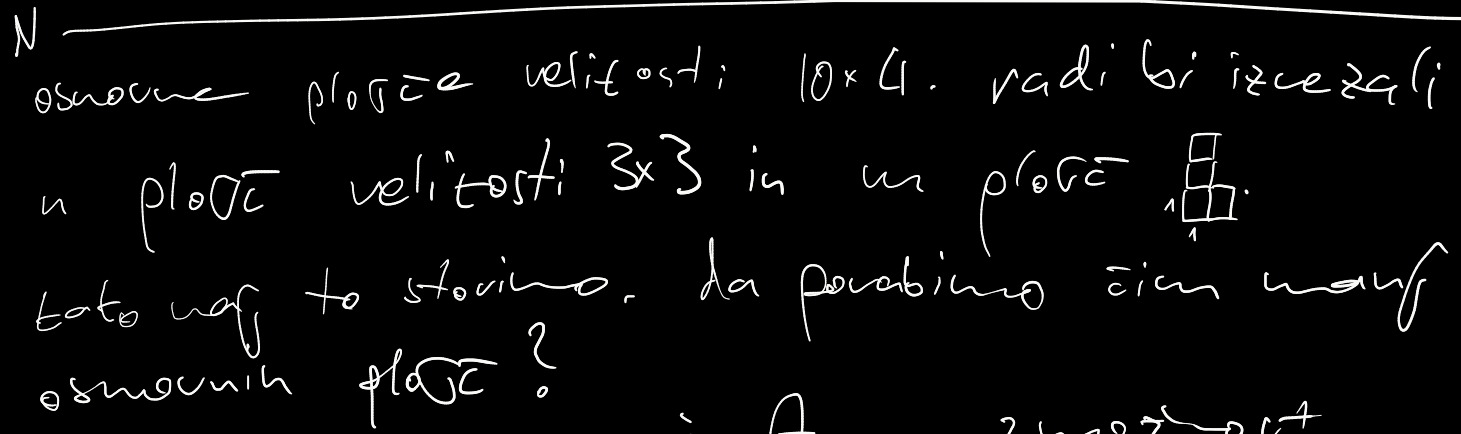 N
osnovne plošče velikosti 10×4. radi bi izrezali
n plošč velikosti 3×3 in m plošč 1 1.
kako naj to storimo, da porabimo čim manj
osnovnih plošč?